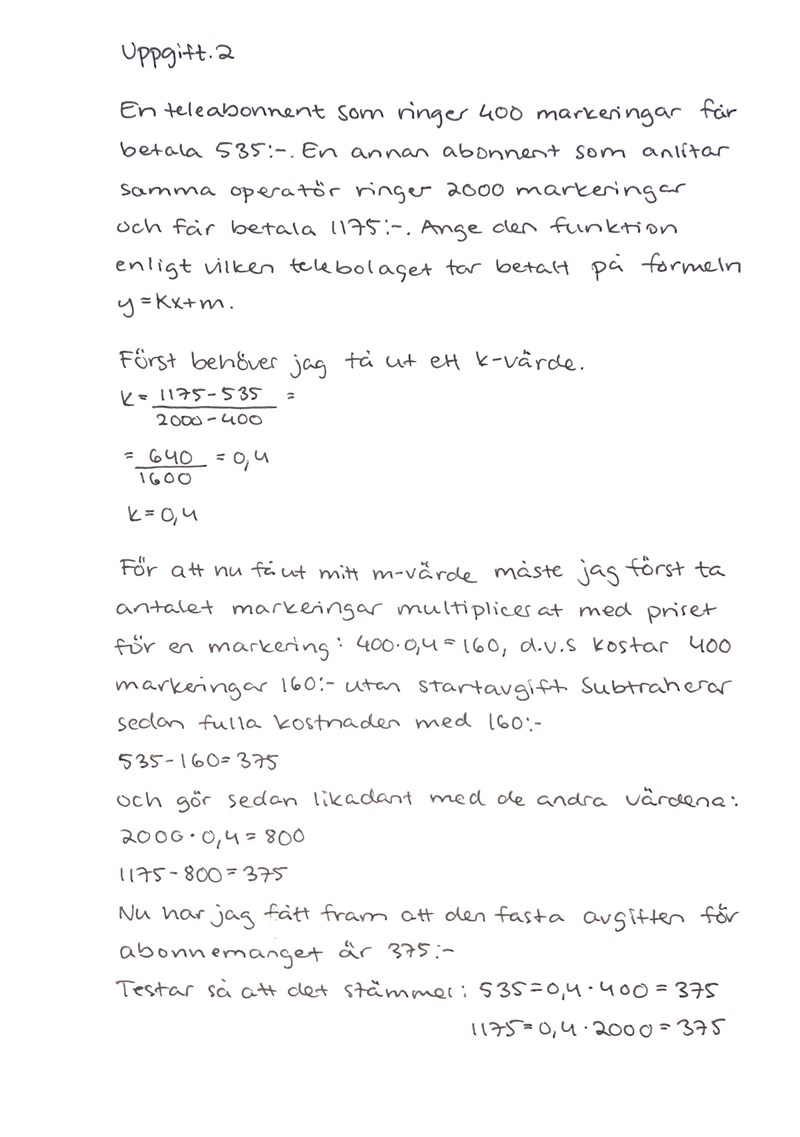 Uppgift.2
En teleabonnent som ringer 400 markeringar får
betala 535:-. En annan abonnent som anlitar
samma operatör ringer 2000 markeringar
och får betala 1175:-. Ange den funktion
enligt vilken telebolaget tar betalt på formeln
y=Kx+m.
Först behöver jag få ut ett k-värde.
k= 1175-535 =
2000-400
= 640 = 0,4
1600
k=0,4
För att nu få ut mitt m-värde måste jag först ta
antalet markeringar multiplicerat med priset
för en markering: 400·0,4=160, d.v.s kostar 400
markeringar 160:- utan startavgift. Subtraherar
sedan fulla kostnaden med 160:-
535-160=375
och gör sedan likadant med de andra värdena:
2000·0,4=800
1175-800=375
Nu har jag fått fram att den fasta avgiften för
abonnemanget är 375:-
Testar så att det stämmer: 535=0,4·400=375
1175=0,4·2000=375